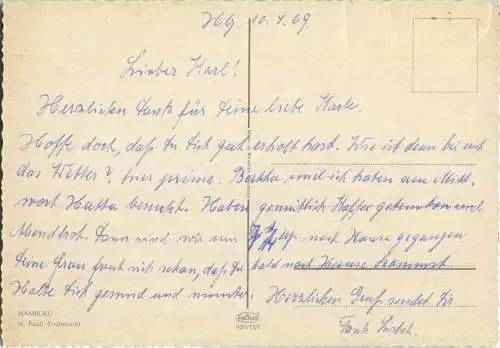 Hbg. 10.4.69
Lieber Karl!
Herzlichen Dank für Deine liebe Karte.
Hoffe doch, daß Du Dich gut erholt hast. Wie ist denn bei euch
das Wetter? hier prima. Bertha, und ich haben am Mitt-
woch Hatta besucht. Haben gemütlich Kaffee getrunken und
Abendbrot. Dann sind wir um nach Hause gegangen
Deine Frau freut sich schon, daß Du bald nach Hause kommst.
Halte Dich gesund und munter. Herzlichen Gruß sendet Dir
HAMBURG
St. Pauli (Fischmarkt)